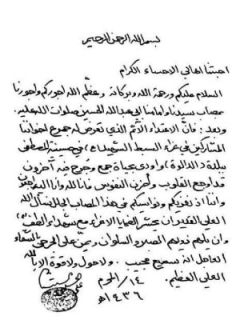 بسم الله الرحمن الرحيم
احبتنا اهالي الاحساء الكرام
السلام عليكم ورحمة الله وبركاته وعظّم الله اجوركم واجورنا
بمصاب سيدنا وامامنا ابي عبد الله الحسين صلوات الله عليه.
وبعد: فانّ الاعتداء الآثم الذي تعرض له جموع اخواننا
المشاركين في عزاء السبط الشهيد (ع) في حسينية المصطفى
ببلدة (الدالوة) واودى بحياة جمع وجرح فيه آخرون
قد اوجع القلوب واحزن النفوس فانا لله وانا اليه راجعون
واننا اذ نعزيكم ونواسيكم في هذا المصاب الجلل نسأل الله
العلي القدير ان يحشر الضحايا الابرياء مع شهداء الطف
وان يلهم ذويهم الصبر والسلوان ويمنّ على الجرحى بالشفاء
العاجل انه سميع مجيب. ولا حول ولا قوة الا بالله
العلي العظيم.
١٤/محرم
١٤٣٦هـ